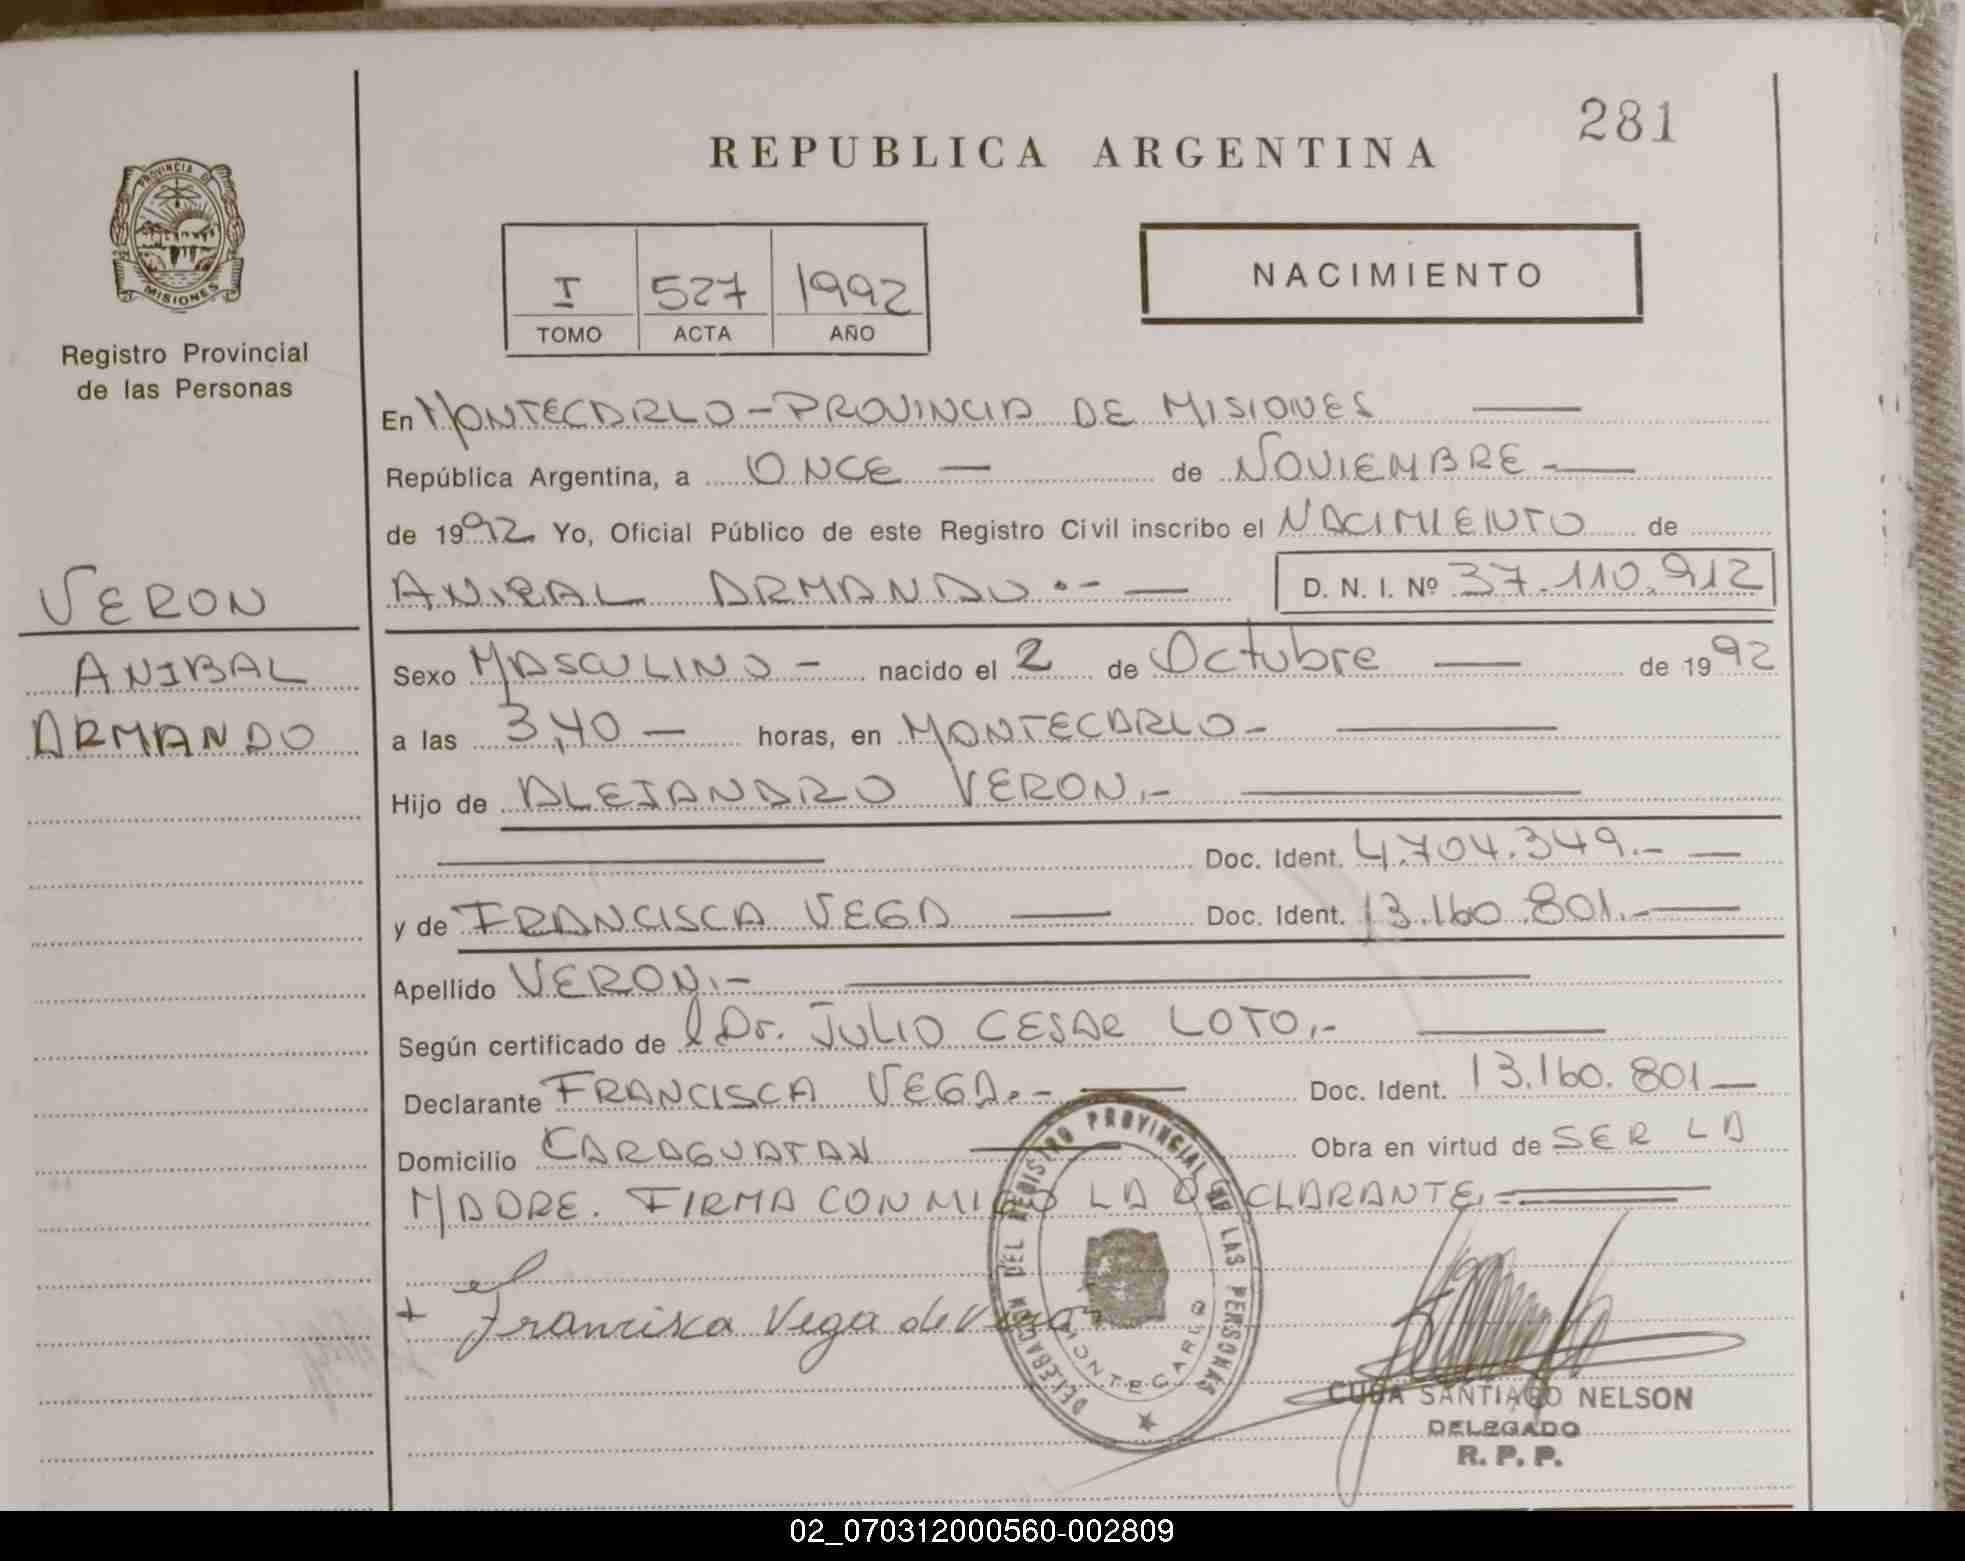 281
REPUBLICA ARGENTINA
PROVINCIA DE
MISIONES
Registro Provincial
de las Personas
I 527 1992
TOMO ACTA AÑO
NACIMIENTO
En MONTECARLO - PROVINCIA DE MISIONES
República Argentina, a ONCE — de NOVIEMBRE -
de 1992 Yo, Oficial Público de este Registro Civil inscribo el NACIMIENTO de
ANIBAL ARMANDO.- — D. N. I. Nº 37.110.912
VERON
ANIBAL
ARMANDO
Sexo MASCULINO - nacido el 2 de Octubre — de 1992
a las 3,40 — horas, en MONTECARLO -
Hijo de ALEJANDRO VERON.-
Doc. Ident. 4.704.349.- —
y de FRANCISCA VEGA — Doc. Ident. 13.160.801.- —
Apellido VERON.-
Según certificado de l Dr. JULIO CESAR LOTO.-
Declarante FRANCISCA VEGA.- — Doc. Ident. 13.160.801 —
Domicilio CARAGUATAY — Obra en virtud de SER LA
MADRE. FIRMA CONMIGO LA DECLARANTE.-
+ Francisca Vega de Veron
DELEGACION DEL REGISTRO PROVINCIAL DE LAS PERSONAS
MONTECARLO
CUBA SANTIAGO NELSON
DELEGADO
R. P. P.
02_070312000560-002809